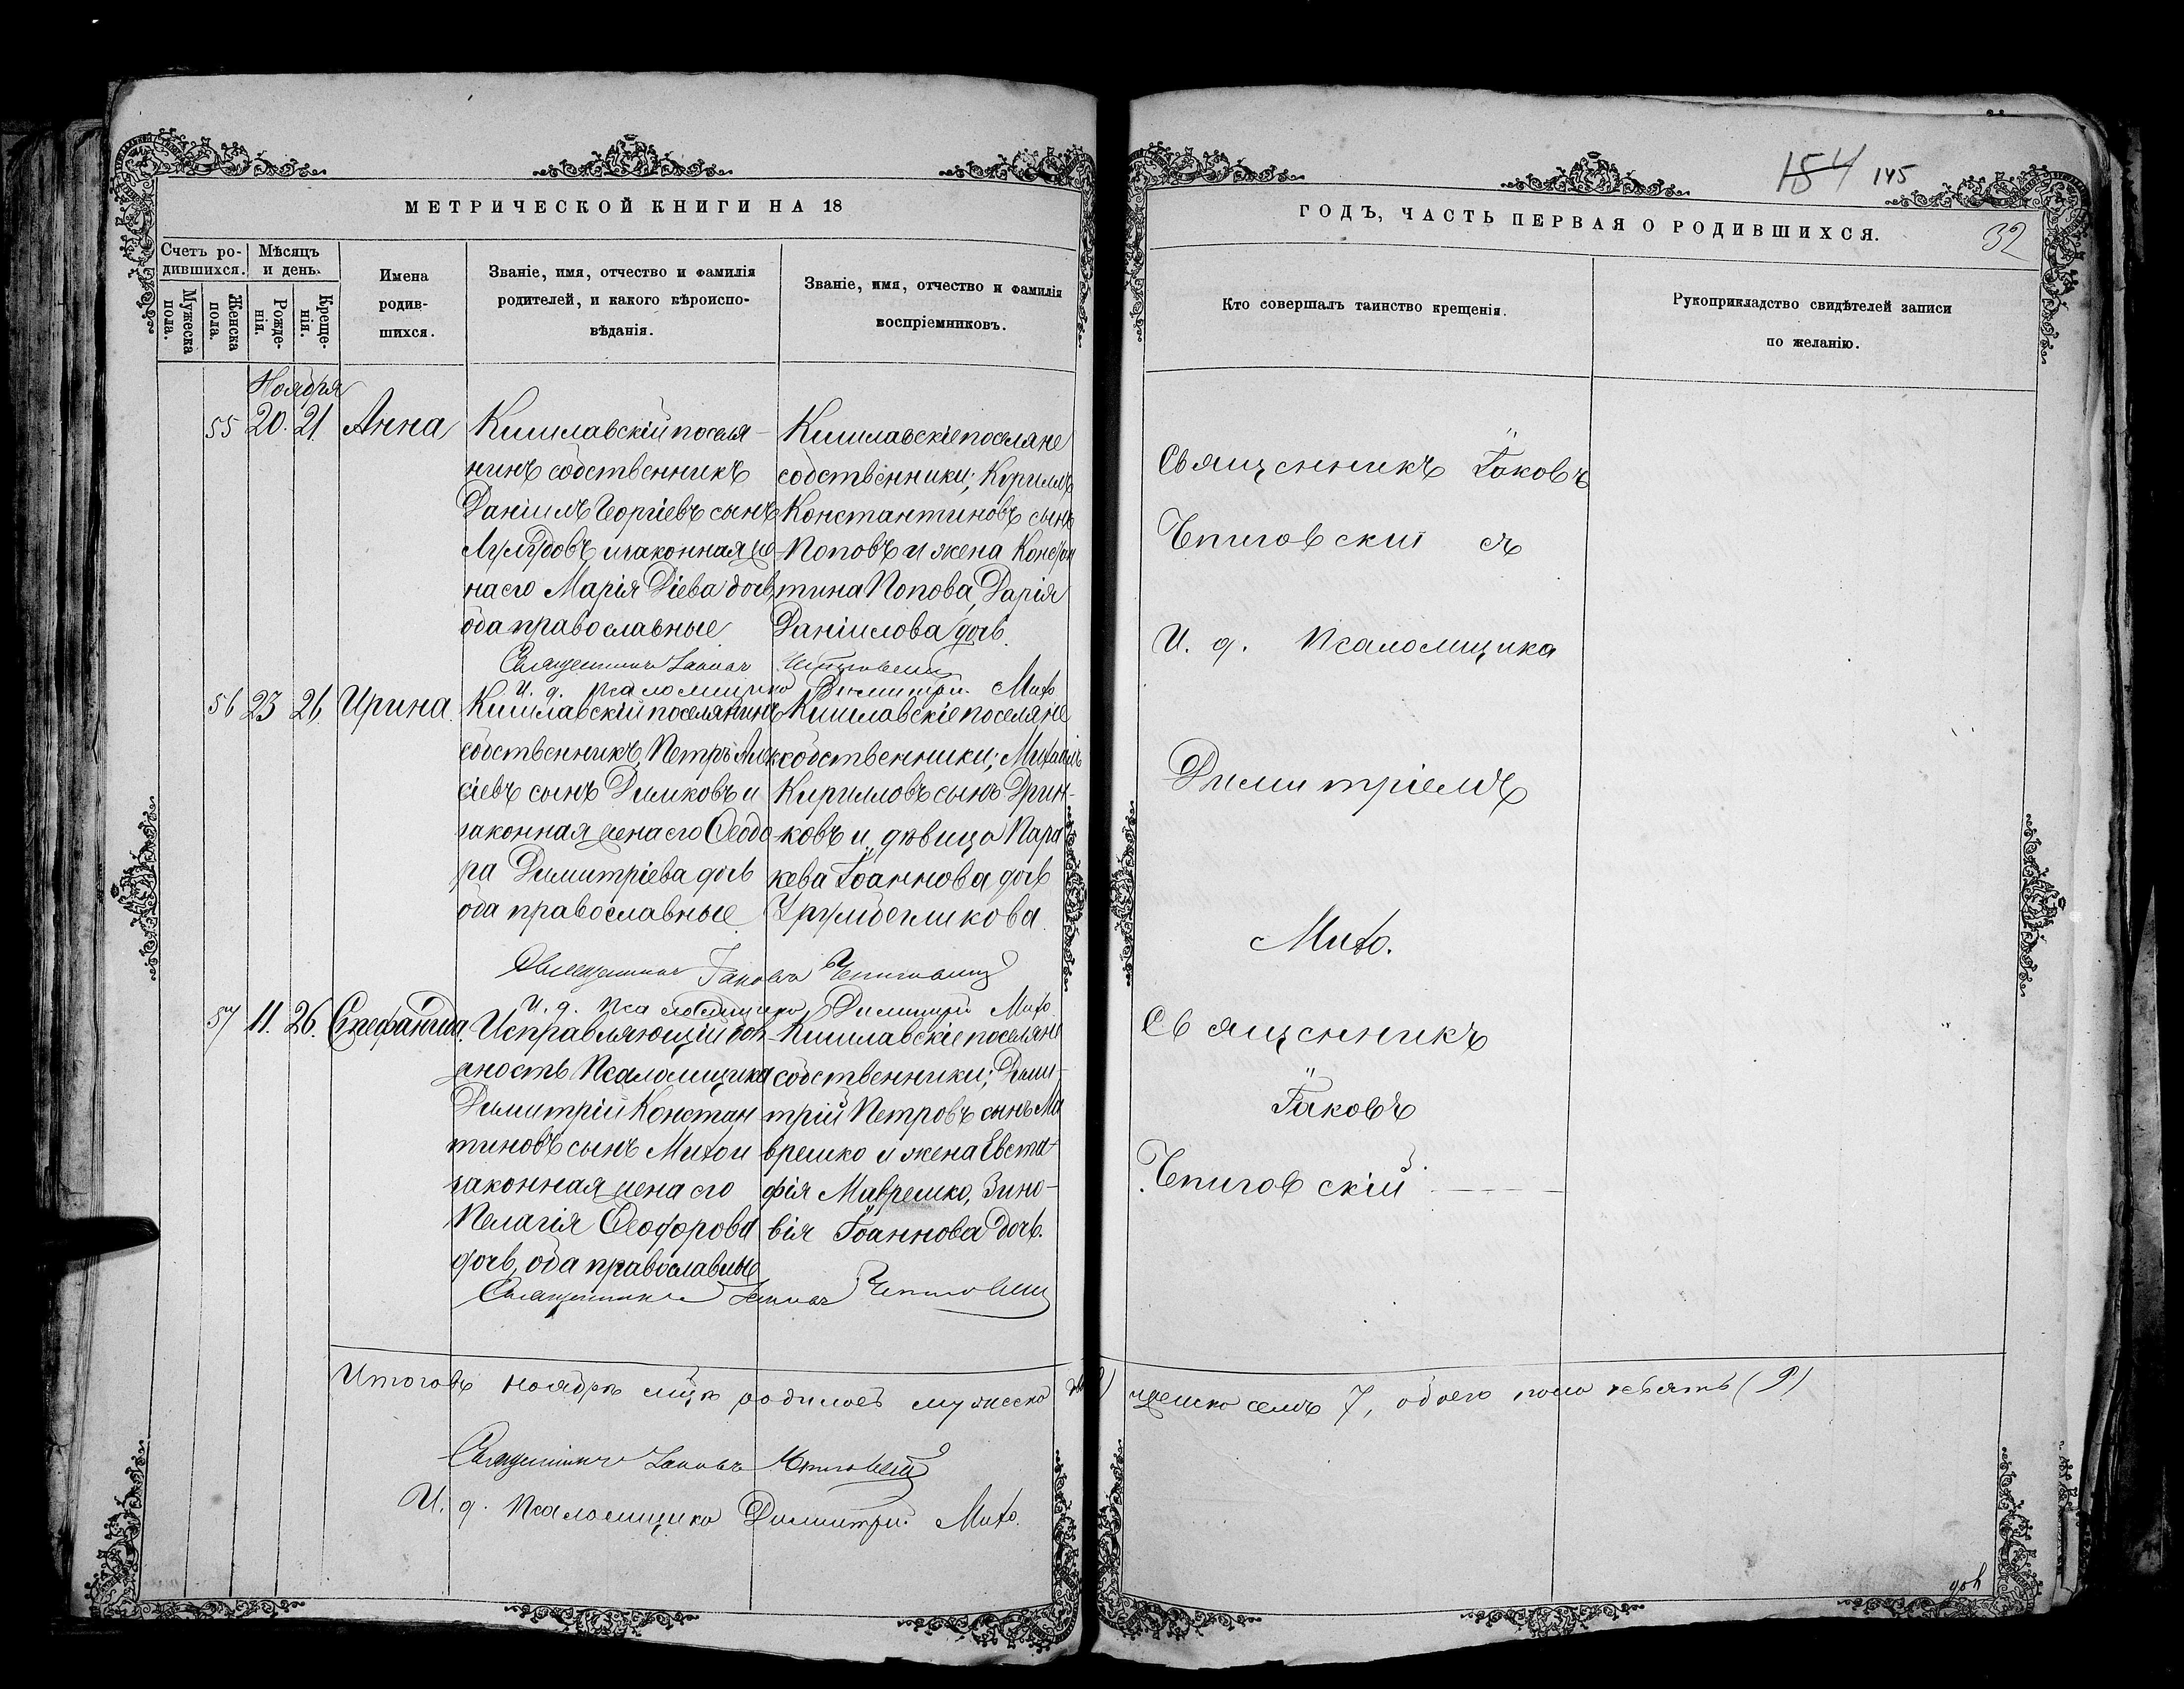 МЕТРИЧЕСКОЙ КНИГИ НА 18
Счетъ родившихся.
Мужеска пола.
Женска пола.
Мѣсяцъ и день.
Рожденія.
Крещенія.
Имена
родив-
шихся.
Званіе, имя, отчество и фамилія
родителей, и какого вѣроиспо-
вѣданія.
Званіе, имя, отчество и фамилія
воспріемниковъ.
Ноября
55 20. 21. Анна
Кишлавскій поселя-
нинъ собственникъ
Даніилъ Георгіевъ сынъ
и законная же-
на его Марія Діева дочь,
оба православные
Кишлавскіе поселяне
собственники; Кириллъ
Константиновъ сынъ
Поповъ и жена Конста
тина Попова, Дарія
Даніилова дочь.
Священникъ Іаковъ
И. д. псаломщика Димитрій Михо
56 23 26 Ирина.
Кишлавскій поселянинъ
собственникъ, Петръ Алек
сіевъ сынъ Димковъ и
законная жена его Ѳеодо
ра Димитріева дочь
оба православные
Кишлавскіе поселяне
собственники; Михаилъ
Кирилловъ сынъ Дрин-
ковъ и дѣвица Пара
кева Іоаннова дочь
Священникъ Іаковъ
И. д. псаломщика Димитрій Михо
57 11. 26. Стефанида.
Исправляющій дол-
жность Псаломщика
Димитрій Констан
тиновъ сынъ Михо и
законная жена его
Пелагія Ѳеодорова
дочь, оба православные
Кишлавскіе поселяне
собственники; Дими-
трій Петровъ сынъ Ма
врешко и жена Евста-
фія Маврешко, Зино-
вія Іоаннова дочь.
Священникъ Іаковъ
Итого въ ноябрѣ мцѣ родилось мужеска
Священникъ Іаковъ
И. д. Псаломщика Димитрій Михо.
154 145
ГОДЪ, ЧАСТЬ ПЕРВАЯ О РОДИВШИХСЯ.
32
Кто совершалъ таинство крещенія.
Рукоприкладство свидѣтелей записи
по желанію.
Священникъ Іаковъ
Чепиговскій съ
И. д. Псаломщика
Димитріемъ
Михо.
Священникъ
Іаковъ
Чепиговскій
женска семь 7, обоего пола девять (9)